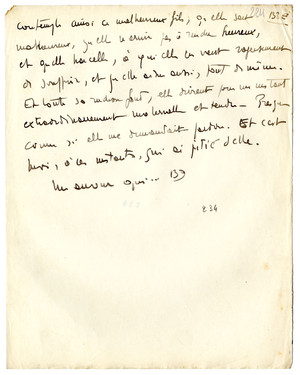 contemple ainsi ce malheureux fils, qu'elle sait
malheureux, qu'elle ne réussit pas à rendre heureux,
et qu'elle harcelle, à qui elle en veut
de souffrir, et qu'elle aime aussi, tout de même.
Et toute sa rancune fond, elle devient pour un instant
extraordinairement maternelle et tendre – Presque
comme si elle me demandait pardon. Et c'est
moi, à ces instants, qui ai pitié d'elle.
Un amour qui...
234